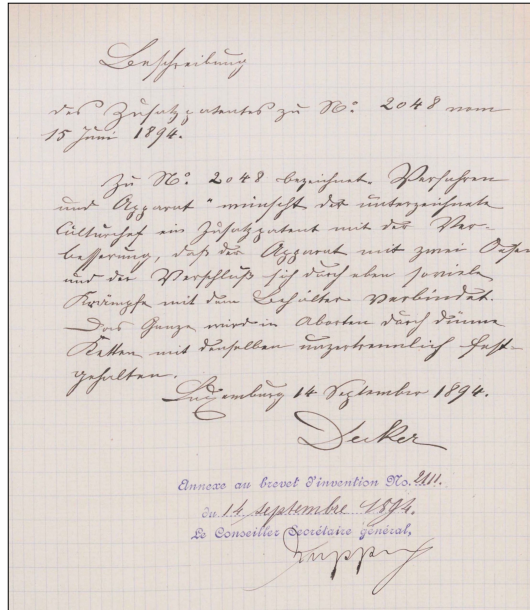 Beschreibung
des Zusatzpatentes zu No. 2048 vom
15 Juni 1894.
Zu No. 2048 bezeichnet „Verfahren
und Apparat" wünscht der unterzeichnete
Culturchef ein Zusatzpatent mit der Ver-
besserung, daß der Apparat mit zwei Oesen
und der Verschluß sich durch eben soviele
Krämpfe mit dem Behälter verbindet.
Das Ganze wird in Aborten durch dünne
Ketten mit denselben unzertrennlich fest-
gehalten.
Luxemburg 14 September 1894.
Decker
Annexe au brevet d'invention No. 2111.
du 14 septembre 1894.
Le Conseiller Secrétaire général,